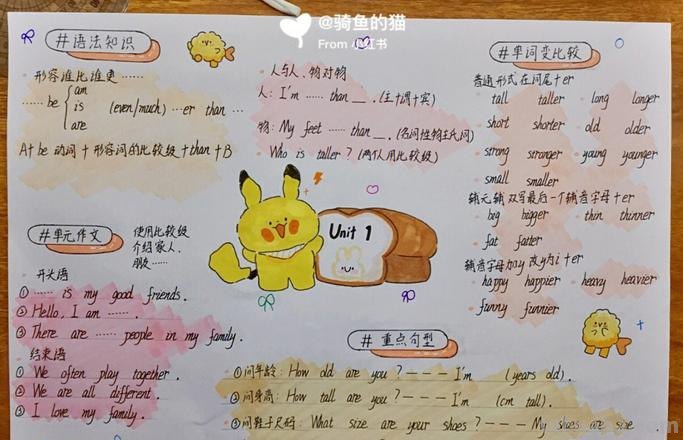 @骑鱼的猫
From 小红书
#语法知识
形容谁比谁更……
am
…… be is (even/much) …er than …
are
A+be 动词+形容词的比较级+than+B
人与人、物对物
人: I'm …… than __ .(主+谓+宾)
物: My feet …… than __ .(名词性物主代词)
Who is taller ? (两个人用比较级)
#单词变比较
普通形式在词尾+er
tall taller long longer
short shorter old older
strong stronger young younger
small smaller
辅元辅 双写最后一个辅音字母+er
big bigger thin thinner
fat fatter
辅音字母加y 改y为i+er
happy happier heavy heavier
funny funnier
Unit 1
#单元作文
使用比较级
介绍家人、
朋友……
开头语
① …… is my good friends .
② Hello, I am …… .
③ There are …… people in my family .
结束语
① We often play together .
② We are all different .
③ I love my family .
# 重点句型
①问年龄: How old are you ? — — — I'm (years old) .
②问身高: How tall are you ? — — — I'm (cm tall) .
③问鞋子尺码: What size are your shoes ? — — — My shoes are size .